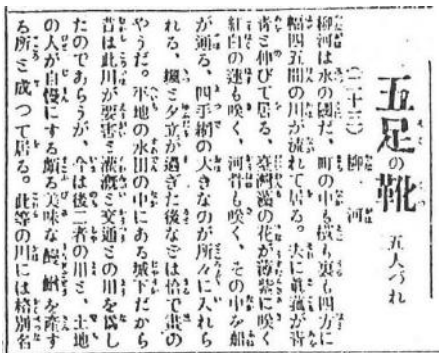 五足の靴
五人づれ
(二十三) 柳河
柳河は水の國だ、町の中も横も裏も四方に
幅四五間の川が流れて居る。夫に眞菰が青
青と伸びて居る、臺灣藻の花が薄紫に咲く
紅白の蓮も咲く、河骨も咲く、その中を船
が通る、四手網の大きなのが所々に入れら
れる、颯と夕立が過ぎた後なぞは恰で畫の
やうだ。平地の水田の中にある城下だから
昔は此川が要害と灌漑と交通との用を爲し
たのであらうが、今は後二者の用と、土地
の人が自慢にする頗る美味な鰻、鮒を産す
る所と成つて居る。此等の川には格別名